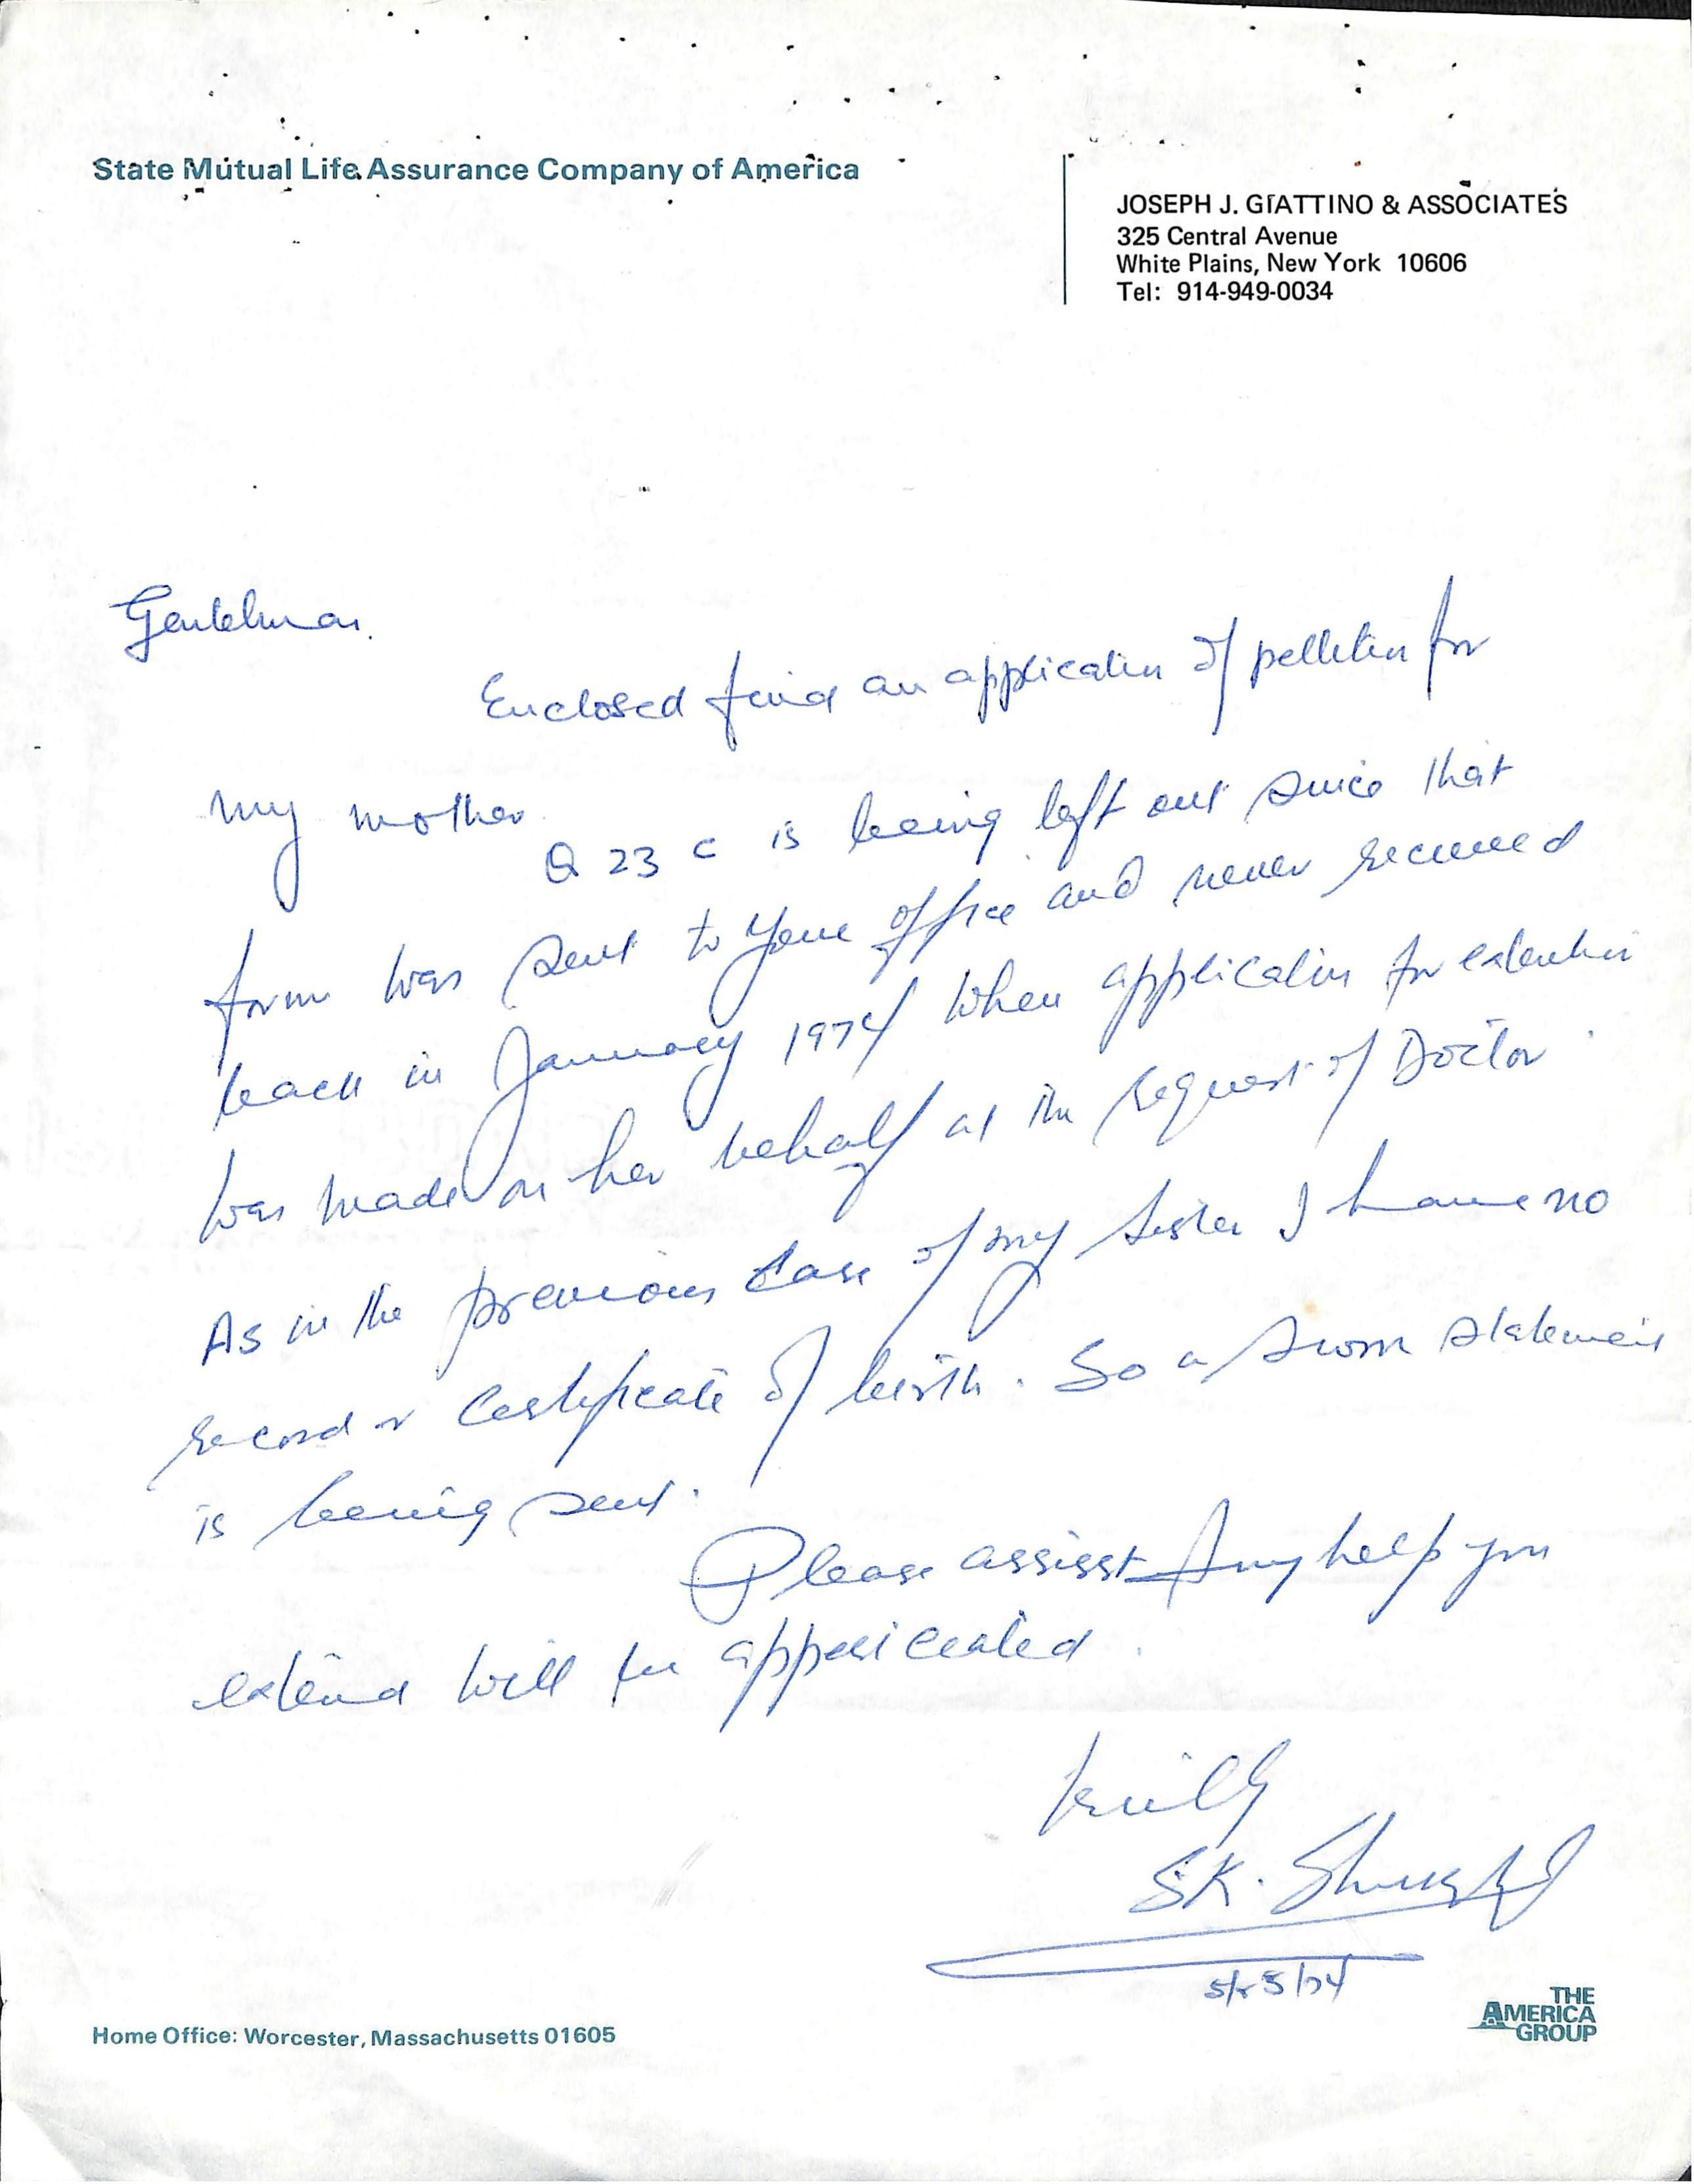 State Mutual Life Assurance Company of America
JOSEPH J. GIATTINO & ASSOCIATES
325 Central Avenue
White Plains, New York 10606
Tel: 914-949-0034
Gentelman.
Enclosed find an application of petition for
my mother.
Q 23 c is being left out since that
form was sent to your office and never received
back in January 1974 when application for extention
was made on her behalf at the request of Doctor.
As in the previous case of my sister I have no
record or certificate of birth. So a sworn statement
is being sent.
Please assisst Any help you
extend will be appericeated.
SK.
Home Office: Worcester, Massachusetts 01605
THE
AMERICA
GROUP